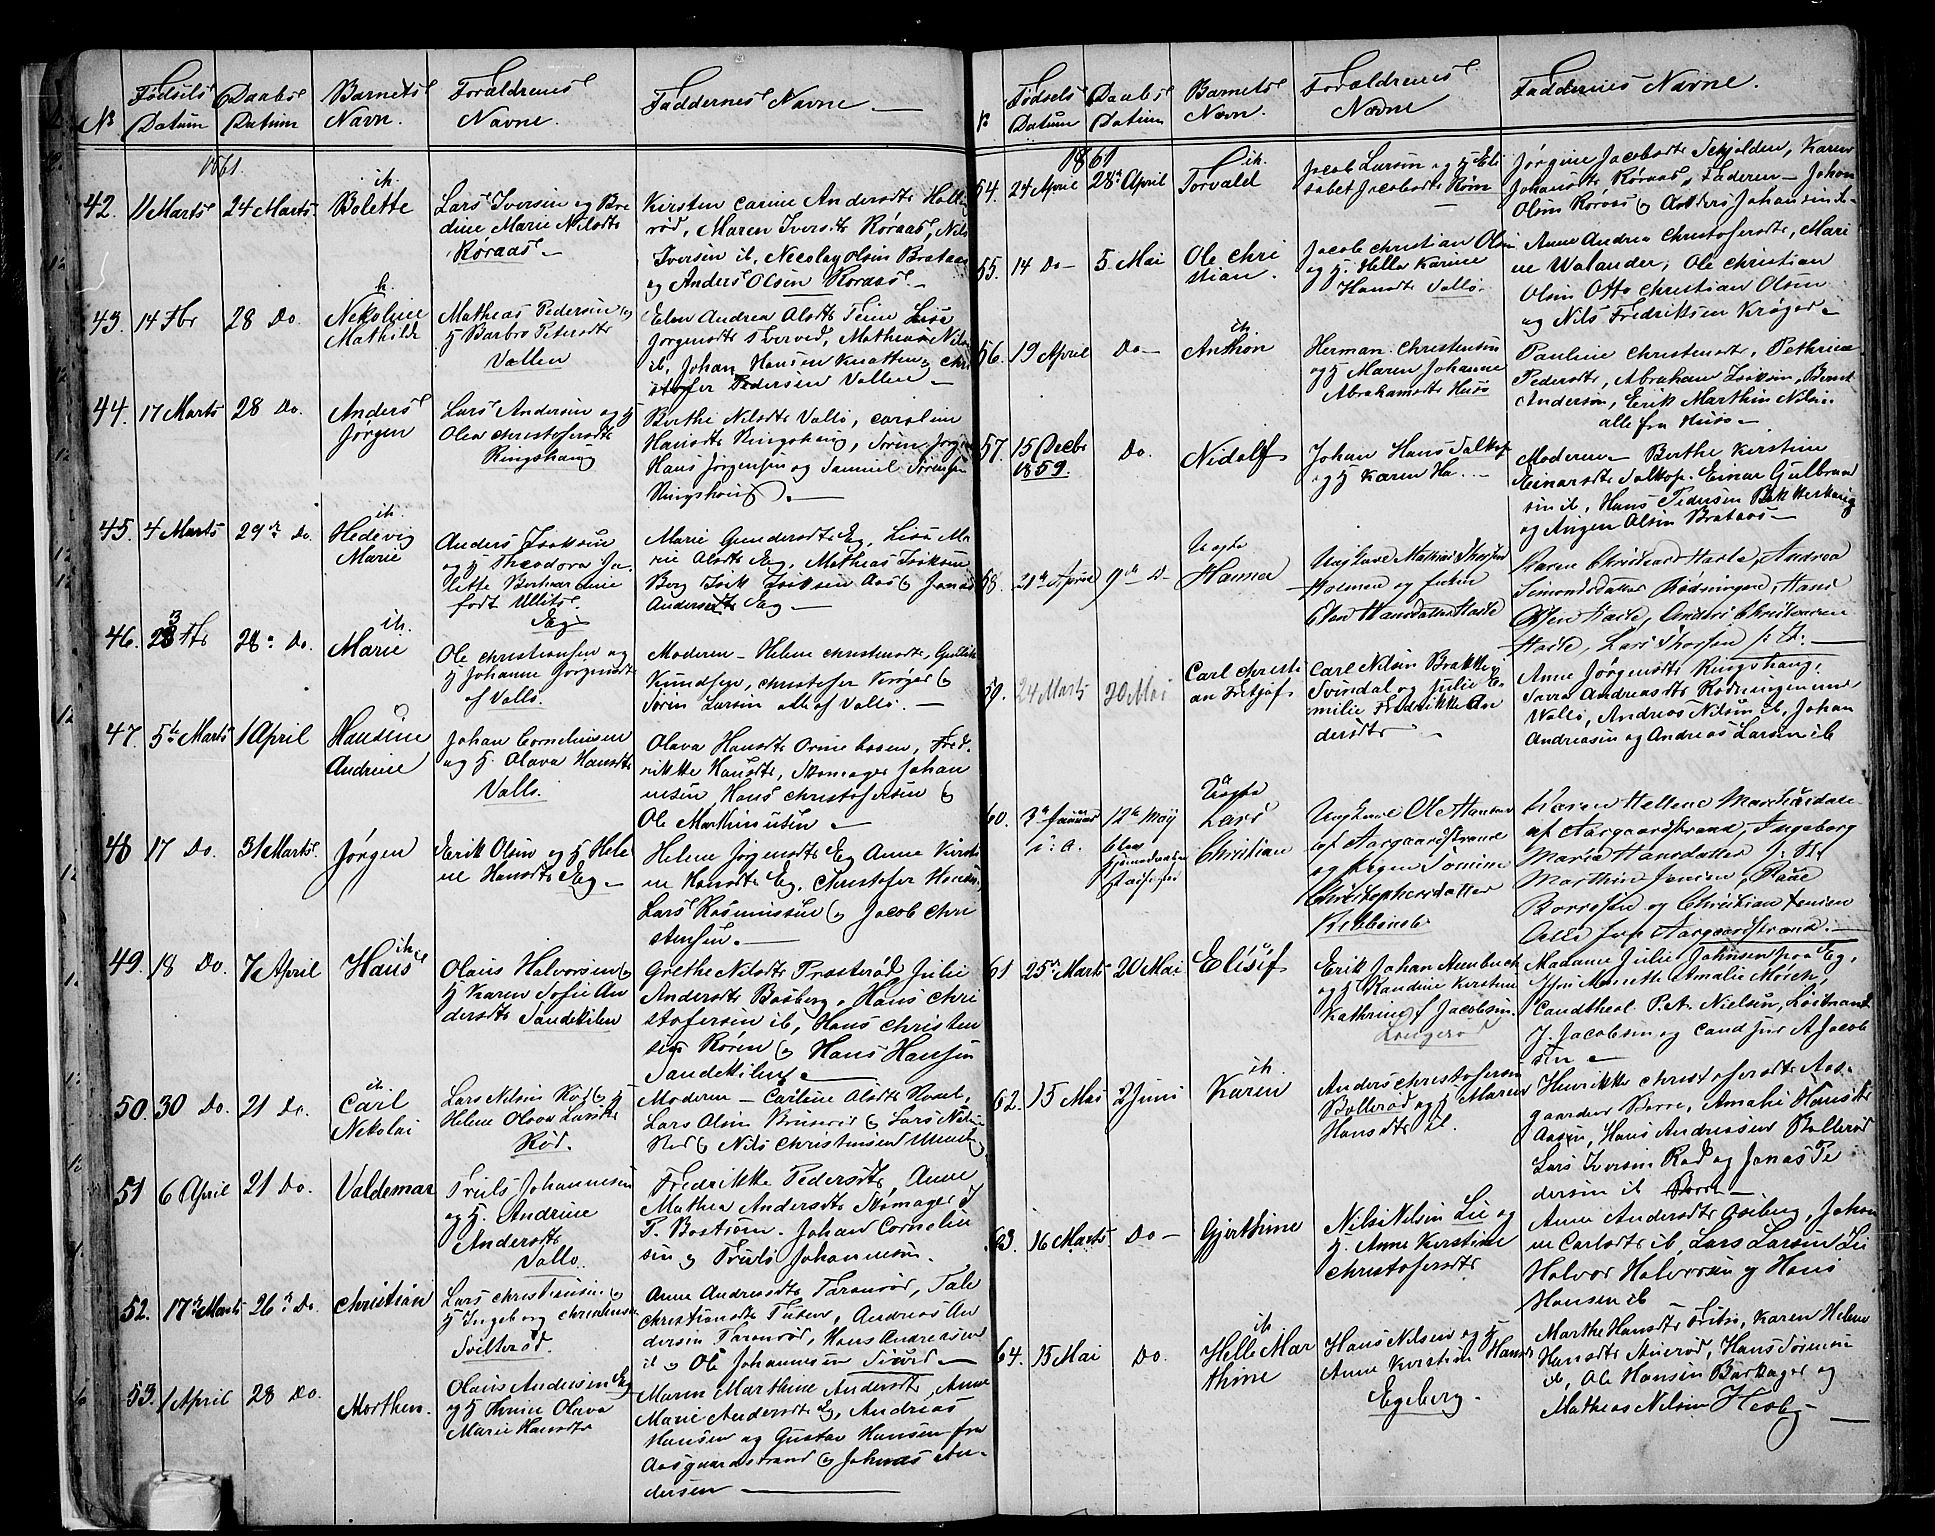 № Fødsels Datum Daabs Datum Barnets Navn. Forældrenes Navne. Faddernes Navne
1861.
42. 11 Marts 24 Marts. Bolette Lars Iversen og Bo
dine Marie Nilsdtr
Røraas.
Kirsten Carine Andersdtr Holte
rød, Maren Iversdtr Røraas, Nils
Iversen ib, Nicolay Olsen Brataas
og Anders Olsen Røraas.
43. 14 Fbr 28 Do. Nekoline
Mathilde
Mathias Pedersen og
H Barbro Petersdtr
Vallen
Elen Andrea Alsdtr Teine Lise
Jørgensdtr Øverød, Mathias Nils
ib, Johan Hansen Knatten og Chri
stofer Pedersen Vallen
44. 17 Marts 28 Do. Anders
Jørgen
Lars Andersen og H
Olea Christofersdtr
Ringshaug
Berthe Nilsdtr Vallø, Caroline
Hansdtr Ringshaug, Søren Jørgen
Hans Jørgensen og Samuel Sørensen
Ringshaug.
45. 4 Marts 29de Do. Hedevig
Marie
Anders Isaksen
og H Theodora Ja
født Ullits.
Eeg
Marie Gundersdtr Eg, Lisa Ma
rie Alsdtr Eg, Mathias Isaksen
Berg Isak Isaksen Aas og Jonas
Andersen Eeg
46. 23 Fbr 28de Do. Marie
Ole Christiansen og
H Johanne Jørgensdtr
af Vallø.
Moderen - Helene Christensdtr, Gullik
Knudsen, Christofer Krøger og
Søren Larsen alle af Vallø.
47. 5te Marts 1 April Handine
Andrine
Johan Corneliusen
og H. Olava Hansdtr
Vallø.
Olava Hansdtr Ormebosen, Fred
rikke Hansdtr, Skomager Johan
nesen, Hans Christofersen og
Ole Marthinusen
48 17 Do. 31 Marts. Jørgen
Erik Olsen og H Hele
ne Hansdtr Eeg
Helene Jørgensdtr Eg Anne Kirsti
ne Hansdtr Eg, Christofer Hansen,
Lars Rasmussen og Jacob Chri
stensen.
49. 18 Do. 7 April Hans
Olaus Halvorsen og
H Karen Sofie An
dersdtr Sandekilen
Grethe Nilsdtr Prosterød, Julie
Andersdtr Basberg, Hans Chri
stofersen ib, Hans Christen
sen Røren og Hans Hansen
Sandekilen
50. 30 Do. 21 Do. Carl
Nekolai
Lars Nilsen Rød og H
Helene Olava Larsdtr
Rød.
Moderen - Carline Alsdtr Horst,
Lars Olsen Bruserød og Lars Nilsen
Rød og Nils Christensen Unneberg
51 6 April 21 Do. Valdemar
Truls Johannesen
og H. Andrine
Andersdtr
Vallø.
Fredrikke Pedersdtr, Anne
Mathea Andersdtr Skomager J
P. Bostrøm. Johan Corneliu
sen og Truls Johannesen.
52. 17de Marts 26de Do. Christian
Lars Christiansen og
H Ingeborg Christensen
Tvetterød.
Anne Andreasdtr Taranrød, Tale
Christiansdtr Tuten, Andreas An
dersen Taranrød, Hans Andreasen
ib og Ole Johannesen Tvørd
53. 1 April 28 Do. Morthen.
Olaus Andersen Eg
og H Trine Olava
Marie Hansdtr
Maren Marthine Andersdtr, Anne
Marie Andersdtr Eg, Andreas
Hansen og Gustav Hansen fra
Aasgaardstrand og Johnas An-
dersen
№ Fødsels Datum Daabs Datum Barnets Navn. Forældrenes Navne Faddernes Navne.
1861
54. 24 April 28de April Torvald
Jacob Larsen og H Eli
sabet Jacobsdtr Røm
Jørgine Jacobsdtr Skjolden, Karen
Johansdtr Røraas, Faderen - Johan
Olsen Røraas og Anders Johansen ib
55. 14 Do 5. Mai Ole Chri
stian.
Jacob Christian Olsen
og H. Hella Karine
Hansdtr Vallø.
Anne Andrea Christofersdtr, Mari
ne Walander, Ole Christian
Olsen Otto Christian Olsen
og Nils Fredriksen Krøger
56. 19 April Do Anthon
Herman Christensen
og H Maren Johanne
Abrahamsdtr Husø
Pauline Christensdtr, Pethrine
Pedersdtr, Abraham Isaksen, Bernt
Andersen, Erik Marthin Nilsen
alle fra Husø
57. 15 Decbr
1859. Do. Nidolf
Johan Hans Salkop
og H Karen Ha...
Moderen - Berthe Kirstine
Einarsdtr Salkop. Einar Gulbrand
sen ib, Hans Pedersen Bakkeskaug
og Jørgen Olsen Brataas
58. 21de April 9de D Uægte
Hanna
Ungkarl Mathias Thorsen
Holmen og Enken
Elen Hansdatter Haslé
Karen Christians Hasle, Andrea
Simonsdatter Rødningen, Hans
Olsen Hasle, Anders Christensen
Hasle, Lars Thorsen
59. 24 Marts 20 Mai Carl Christi
an Fritjof
Carl Nilsen Brekke i
Svindal og Julie E
milie Fredrikke An
dersdtr
Anne Jørgensdtr Ringshaug.
Sara Andreasdtr Rødningen
Vallø, Andreas Nilsen ib, Johan
Andreasen og Andreas Larsen ib
60. 3de Januar
i. a. 12te May Uægte
Lars
Christian
Ungkarl Ole Hansen
af Aargaardstrand
og Pigen Jonine
Christophersdatter
Karen Hellene Marthisdatr
af Aargaardstrand, Ingeborg
Maria Hansdatter
Marthin Jensen, Isaac
Borresen og Christian Jensen
Alle fra Aargaardstrand.
61 25de Marts 20 Mai Elisif
Erik Johan Aumbuck
og H Randine Kirstine
Kathrine f Jacobsen.
Longerø
Madame Julie Johnsen paa Eg,
Jfr. Merethe Amalie Mørch,
Cand theol. P. A. Nielsen, Løitnant
J. Jacobsen og Cand jur A Jacob
sen
62. 15 Mai 2 Juni Karen
Anders Christofersen
Bollerød og H Maren
Hansdtr ib.
Henrikke Christofersdtr Aas-
gaarden Borre, Amalie Hansdtr
Aasen, Hans Andreasen Bollerød
Lars Iversen Rød og Jonas Pe
dersen ib Borre
63. 16 Marts. Do Gjerthine
Nils Nilsen Lie og
H. Anne Kirstine
Christofersdtr
Anne Andersdtr Oseberg, Johan
ne Carlsdtr ib, Lars Larsen Lie
Halvor Halvorsen og Hans
Hansen ib
64. 15 Mai Do. Helle Mar
thine
Hans Nilsen og H
Anne Kirstine Hansdtr
Egeberg.
Marthe Hansdtr Fritsø, Karen Helene
Hansdtr Auerød, Hans Simonsen
ib, Ole Hansen Barkager og
Mathias Nilsen Hesby